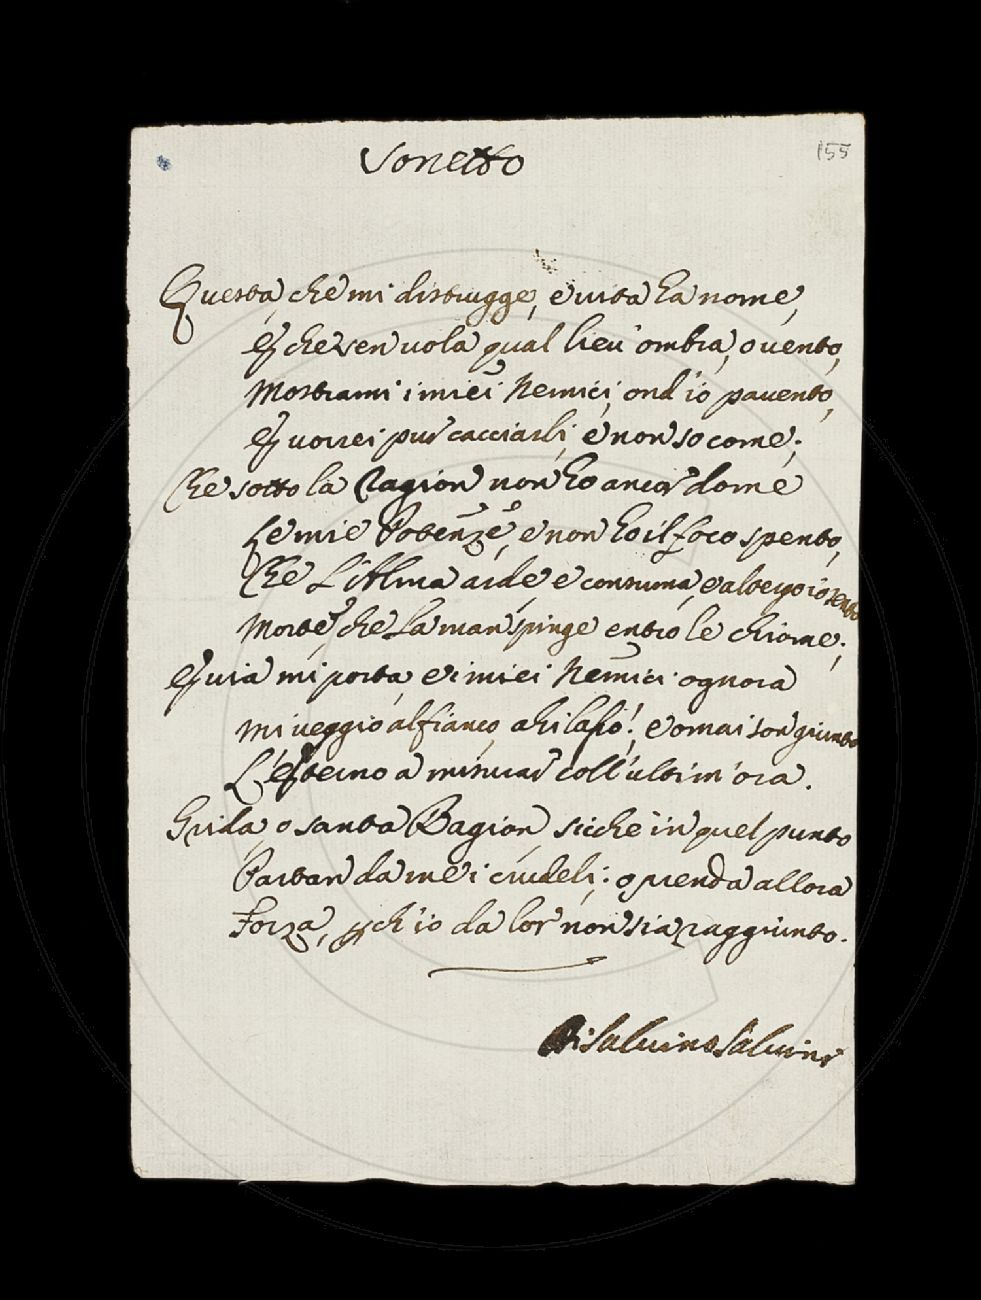 Sonetto
155
Questa, che mi distrugge, e vita ha nome,
E che sen vola qual lieu' ombra, o vento,
Mostrami i miei Nemici, ond' io pavento,
E vorrei pur cacciarli, e non so come;
Che sotto la Ragion non ho ancor dome
Le mie Potenze, e non ho il foco spento,
Che L'Alma arde, e consuma, e a tergo io sento
Morte, che La man spinge entro le chiome;
E via mi porta, e i miei Nemici ognora
Mi veggio al fianco, ahi lasso! e omai son giunto
L'Eterno a misurar coll' ultim' ora.
Guida, o santa Ragion, sicche in quel punto
Partan da me i crudeli; o prenda allora
Forza, pch' io da lor non sia raggiunto.
Di Salvino Salvini